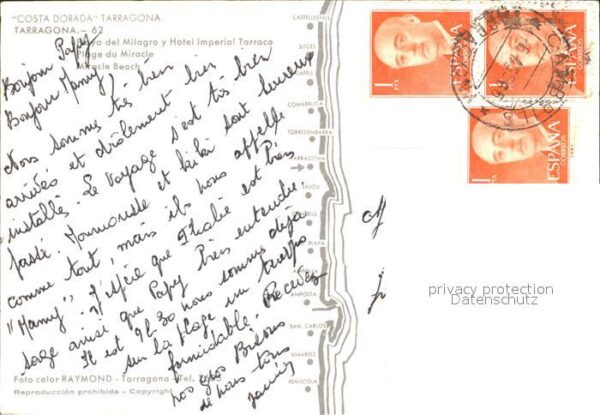 "COSTA DORADA" TARRAGONA
TARRAGONA. - 62
Playa del Milagro y Hotel Imperial Tarraco
Plage du Miracle
Miracle Beach
Bonjour Papy
Bonjour Mamy,
Nous somme très bien bien
arrivés et drôlement bien
installés. Le voyage s'est très bien
passé. et kiki sont heureux
comme tout, mais ils nous appelle
"Mamy". J'espère que Thalie est très
sage ainsi que Papy très entendu.
Il est 9h30 nous sommes déjà
sur la plage un temps
formidable. Recevez
nos gros Bisous
de nous tous
CASTELLDEFELS
SITGES
CALAFELL
COMARRUGA
TORREDEMBARRA
TARRAGONA
SALOU
CAMBRILS
PLAYA
AMPOSTA
SAN CARLOS
VINAROZ
PEÑISCOLA
1
PTA
ESPAÑA
CORREOS
ESPAÑA
CORREOS
1
PTA
ESPAÑA
CORREOS
privacy protection
Datenschutz
Foto color RAYMOND - Tarragona - Tel.
Reproducción prohibida - Copyright